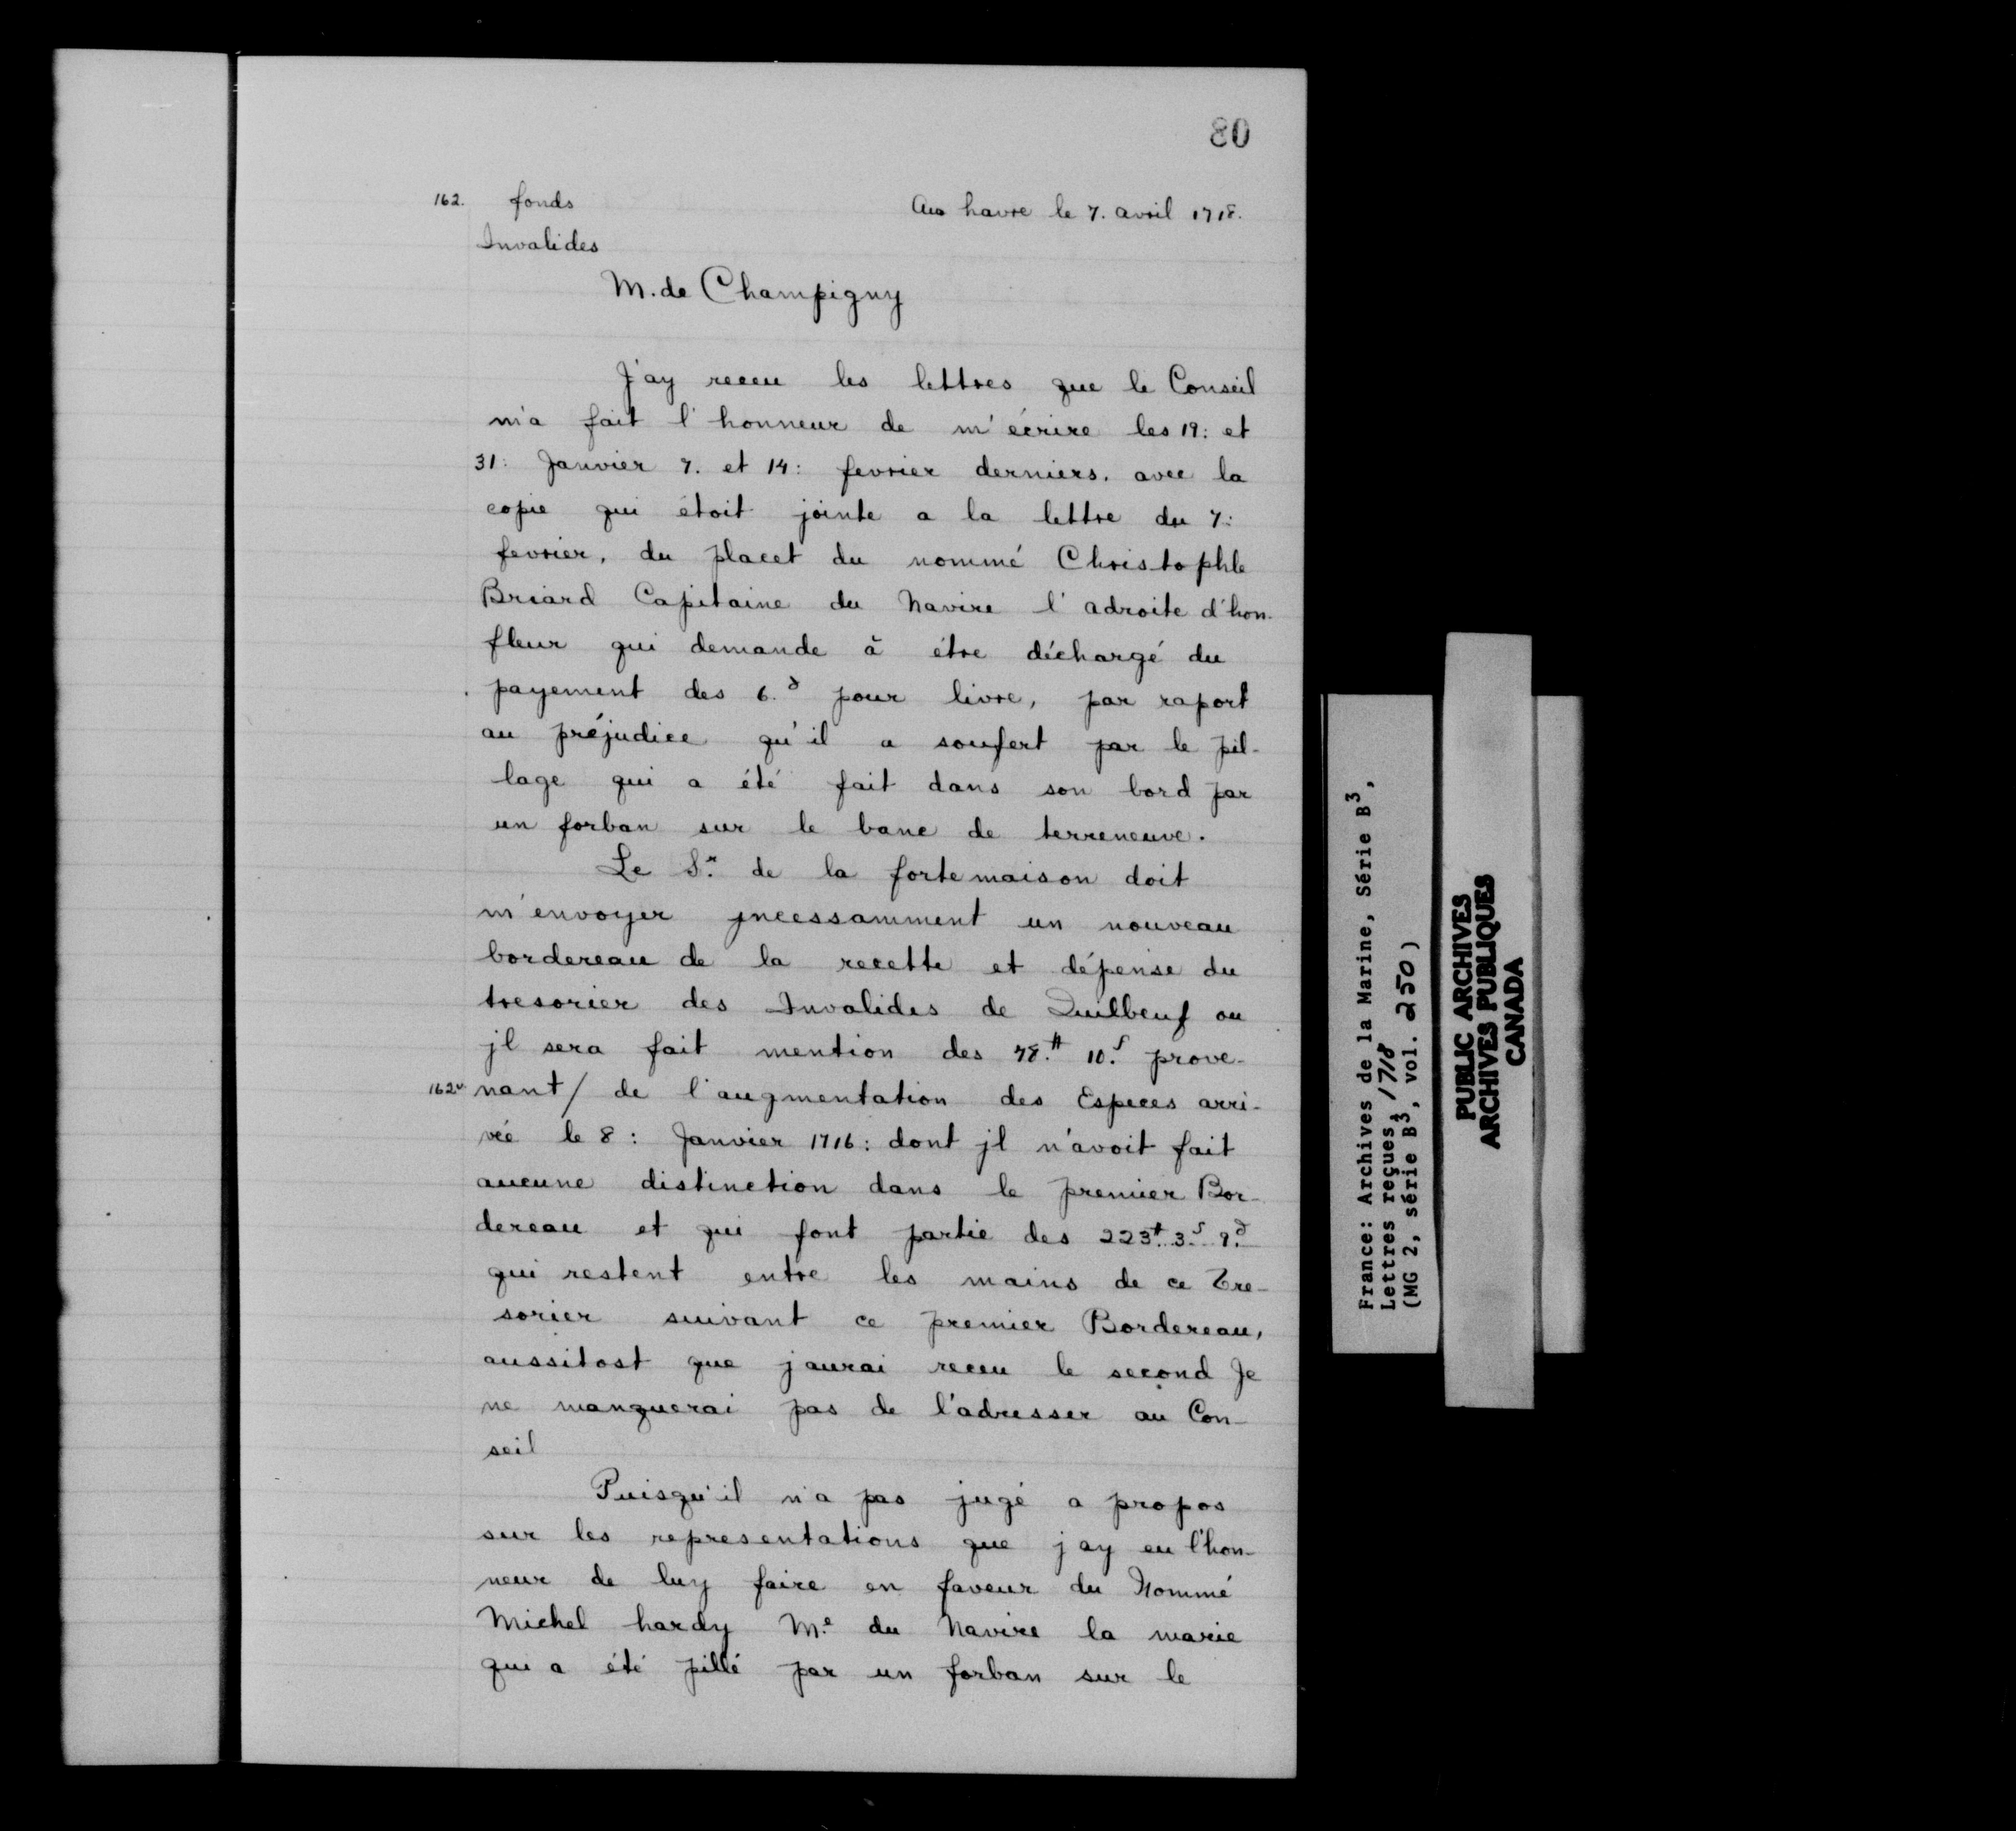 80
162. fonds
Au havre le 7. avril 1718.
Invalides
M. de Champigny
J'ay receu les lettres que le Conseil
m'a fait l'honneur de m'écrire les 19: et
31: Janvier 7. et 14: fevrier derniers. avec la
copie qui étoit jointe a la lettre du 7:
fevrier, du placet du nommé Christophle
Briard Capitaine du Navire l'adroite d'hon-
fleur qui demande à étre déchargé du
payement des 6.d pour livre, par raport
au préjudice qu'il a soufert par le pil-
lage qui a été fait dans son bord par
un forban sur le banc de terreneuve.
Le S.r de la fortemaison doit
m'envoyer jncessamment un nouveau
bordereau de la recette et dépense du
tresorier des Invalides de Quilbeuf ou
jl sera fait mention des 78.# 10.s prove-
162v nant/ de l'augmentation des Especes arri-
vée le 8: Janvier 1716: dont jl n'avoit fait
aucune distinction dans le premier Bor-
dereau et qui font partie des 223# 3.s 9.d
qui restent entre les mains de ce Tre-
sorier suivant ce premier Bordereau,
aussitost que jaurai receu le second Je
ne manquerai pas de l'adresser au Con-
seil
Puisqu'il n'a pas jugé a propos
sur les representations que jay eu l'hon-
neur de luy faire en faveur du Nommé
Michel hardy M.e du Navire la marie
qui a été pillé par un forban sur le
France: Archives de la Marine, Série B3,
Lettres reçues, 1718
(MG 2, série B3, vol. 250)
PUBLIC ARCHIVES
ARCHIVES PUBLIQUES
CANADA